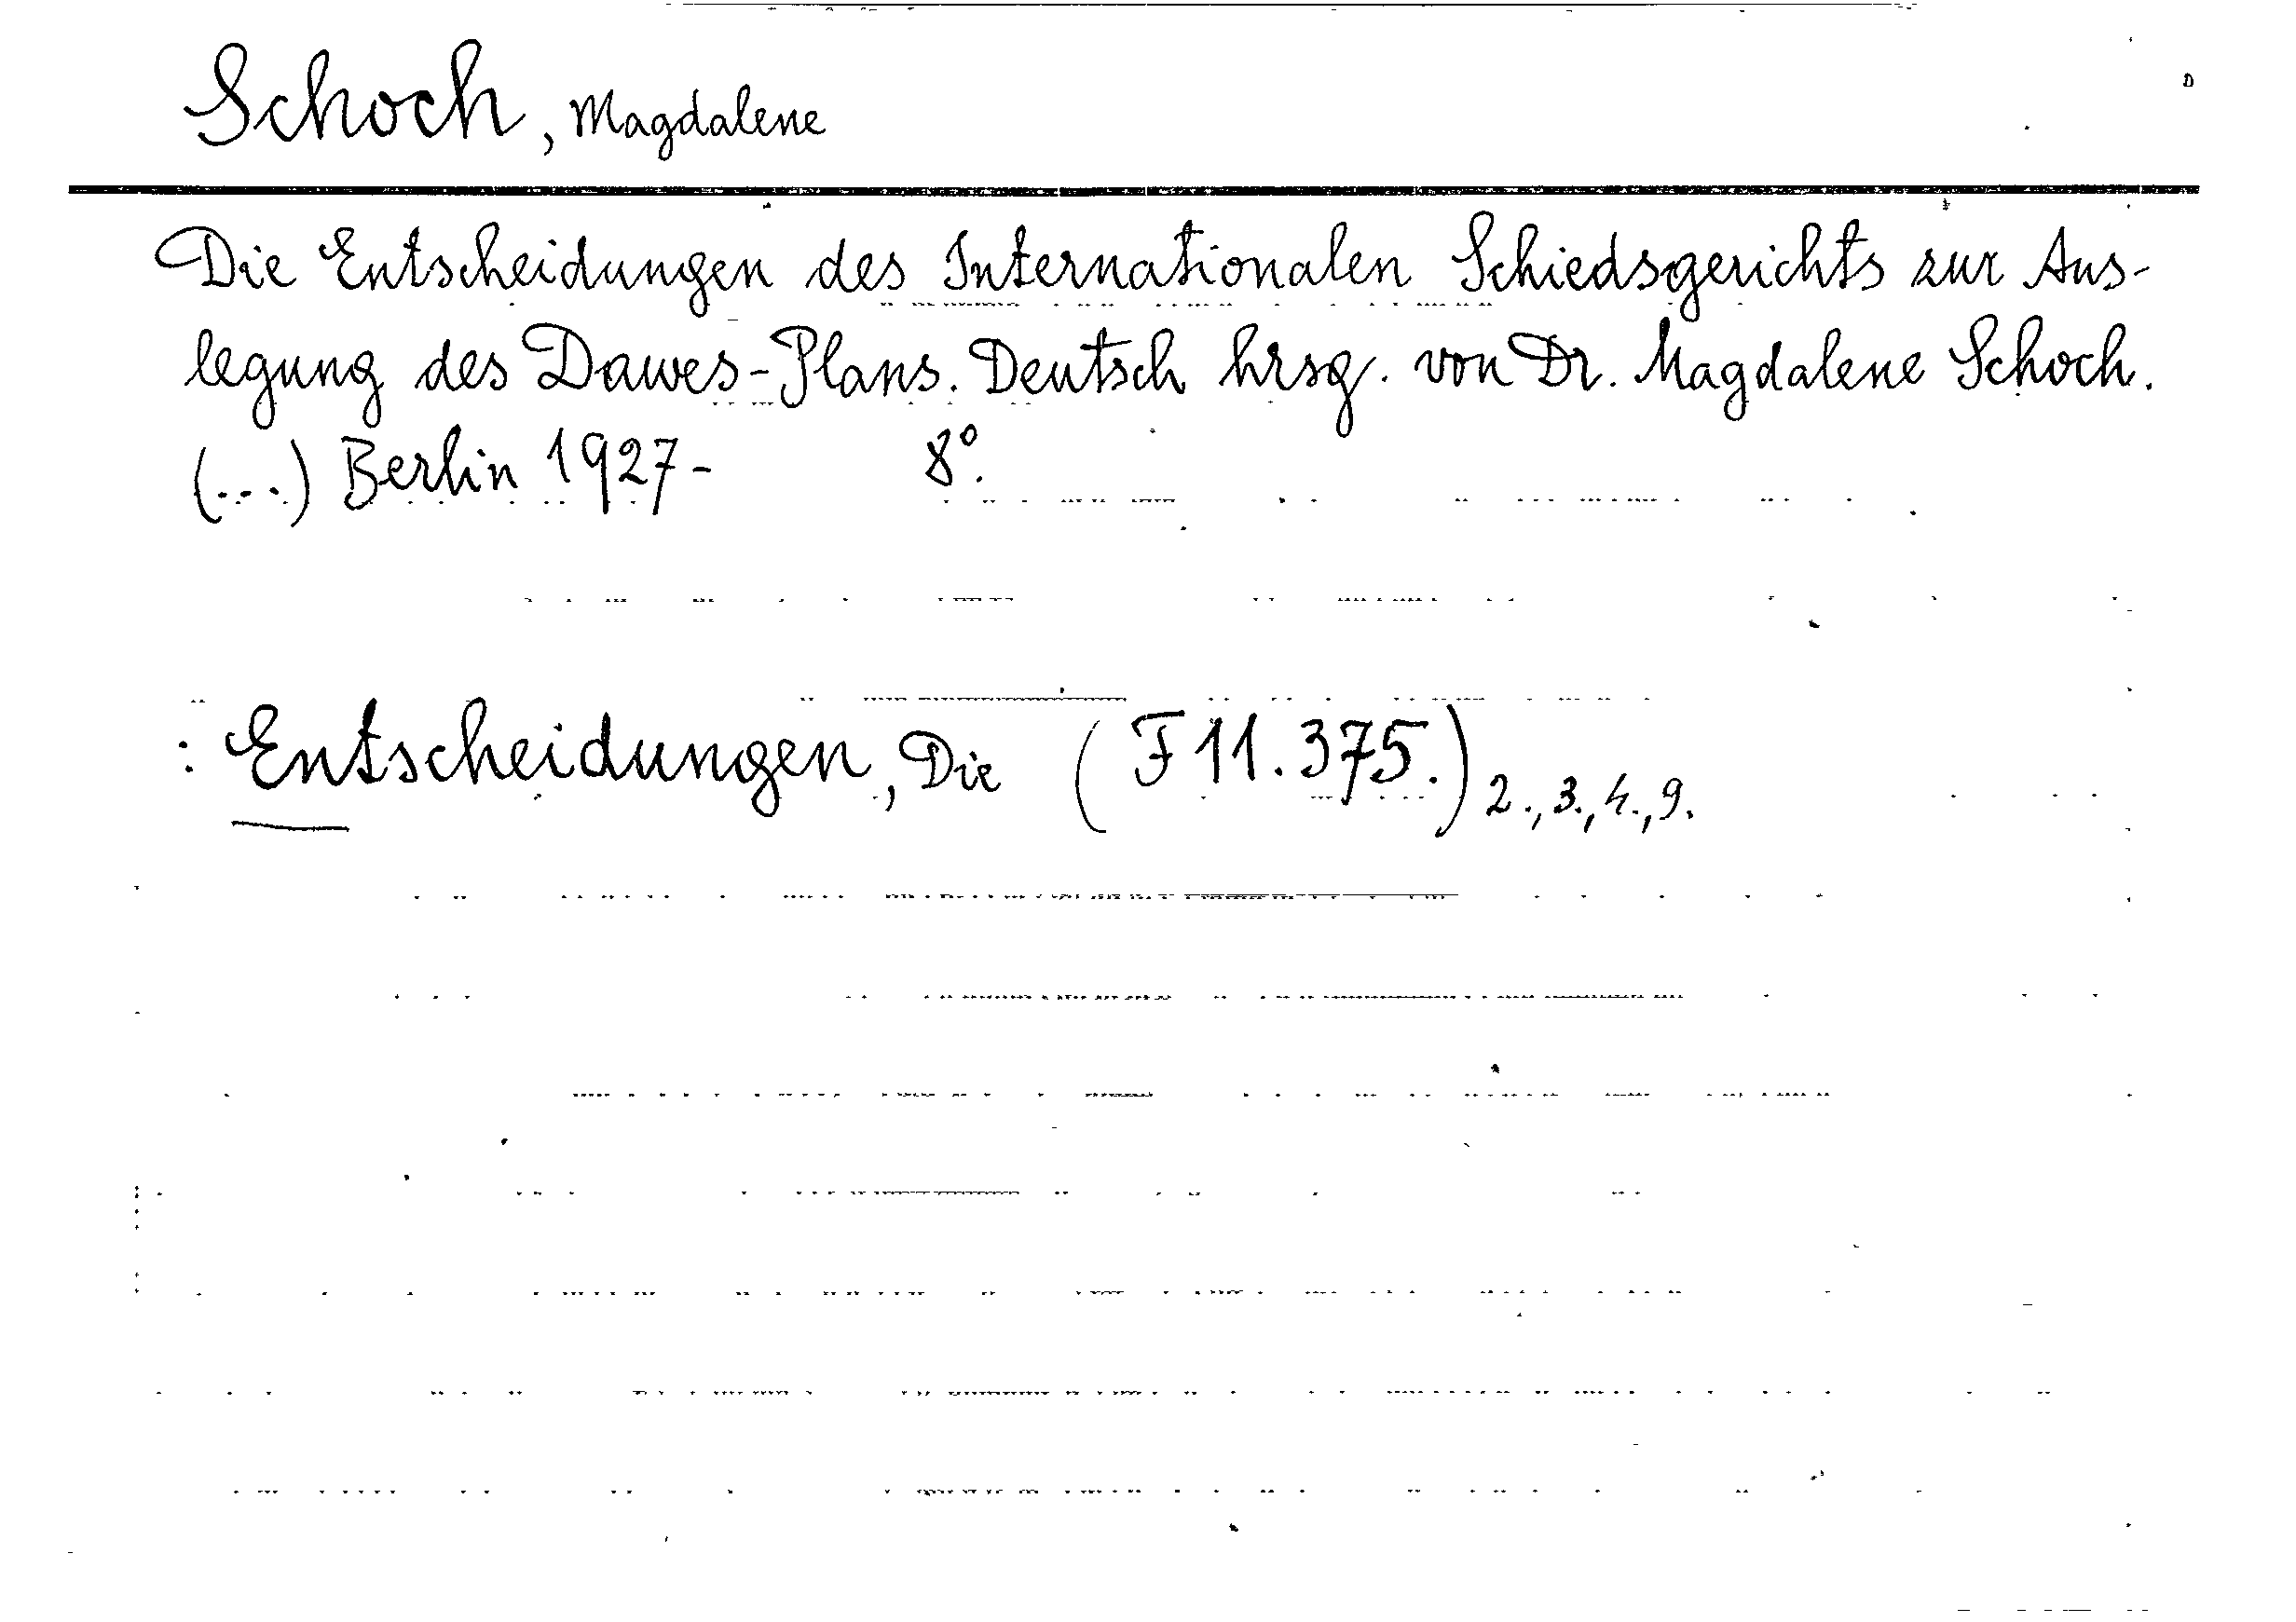 Schoch, Magdalene
Die Entscheidungen des Internationalen Schiedsgerichts zur Aus-
legung des Dawes-Plans. Deutsch hrsg. von Dr. Magdalene Schoch.
(...) Berlin 1927- 8°.
: Entscheidungen, Die (F 11.375.) 2., 3., 4., 9.